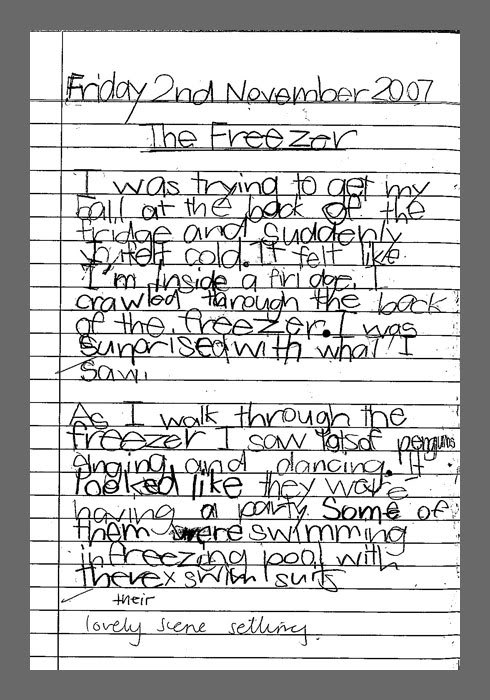 Friday 2nd November 2007
The Freezer
I was trying to get my
ball at the back of the
fridge and suddenly
it felt cold. It felt like
I'm inside a fridge. I
crawled through the back
of the freezer. I was
surprised with what I
saw.
As I walk through the
freezer I saw lots of penguins
singing and dancing. It
looked like they were
having a party. Some of
them were swimming
in freezing pool with
there x swim suits
their
lovely scene setting.